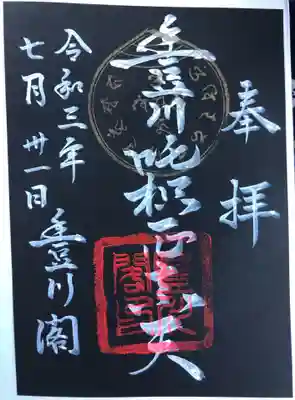 奉拝
豊川吒枳尼真天
令和三年
七月卅一日
豊川閣